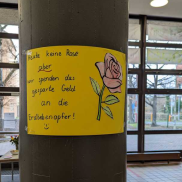 Heute keine Rose
aber
wir spenden das
gesparte Geld
an die
Erdbebenopfer!
:)